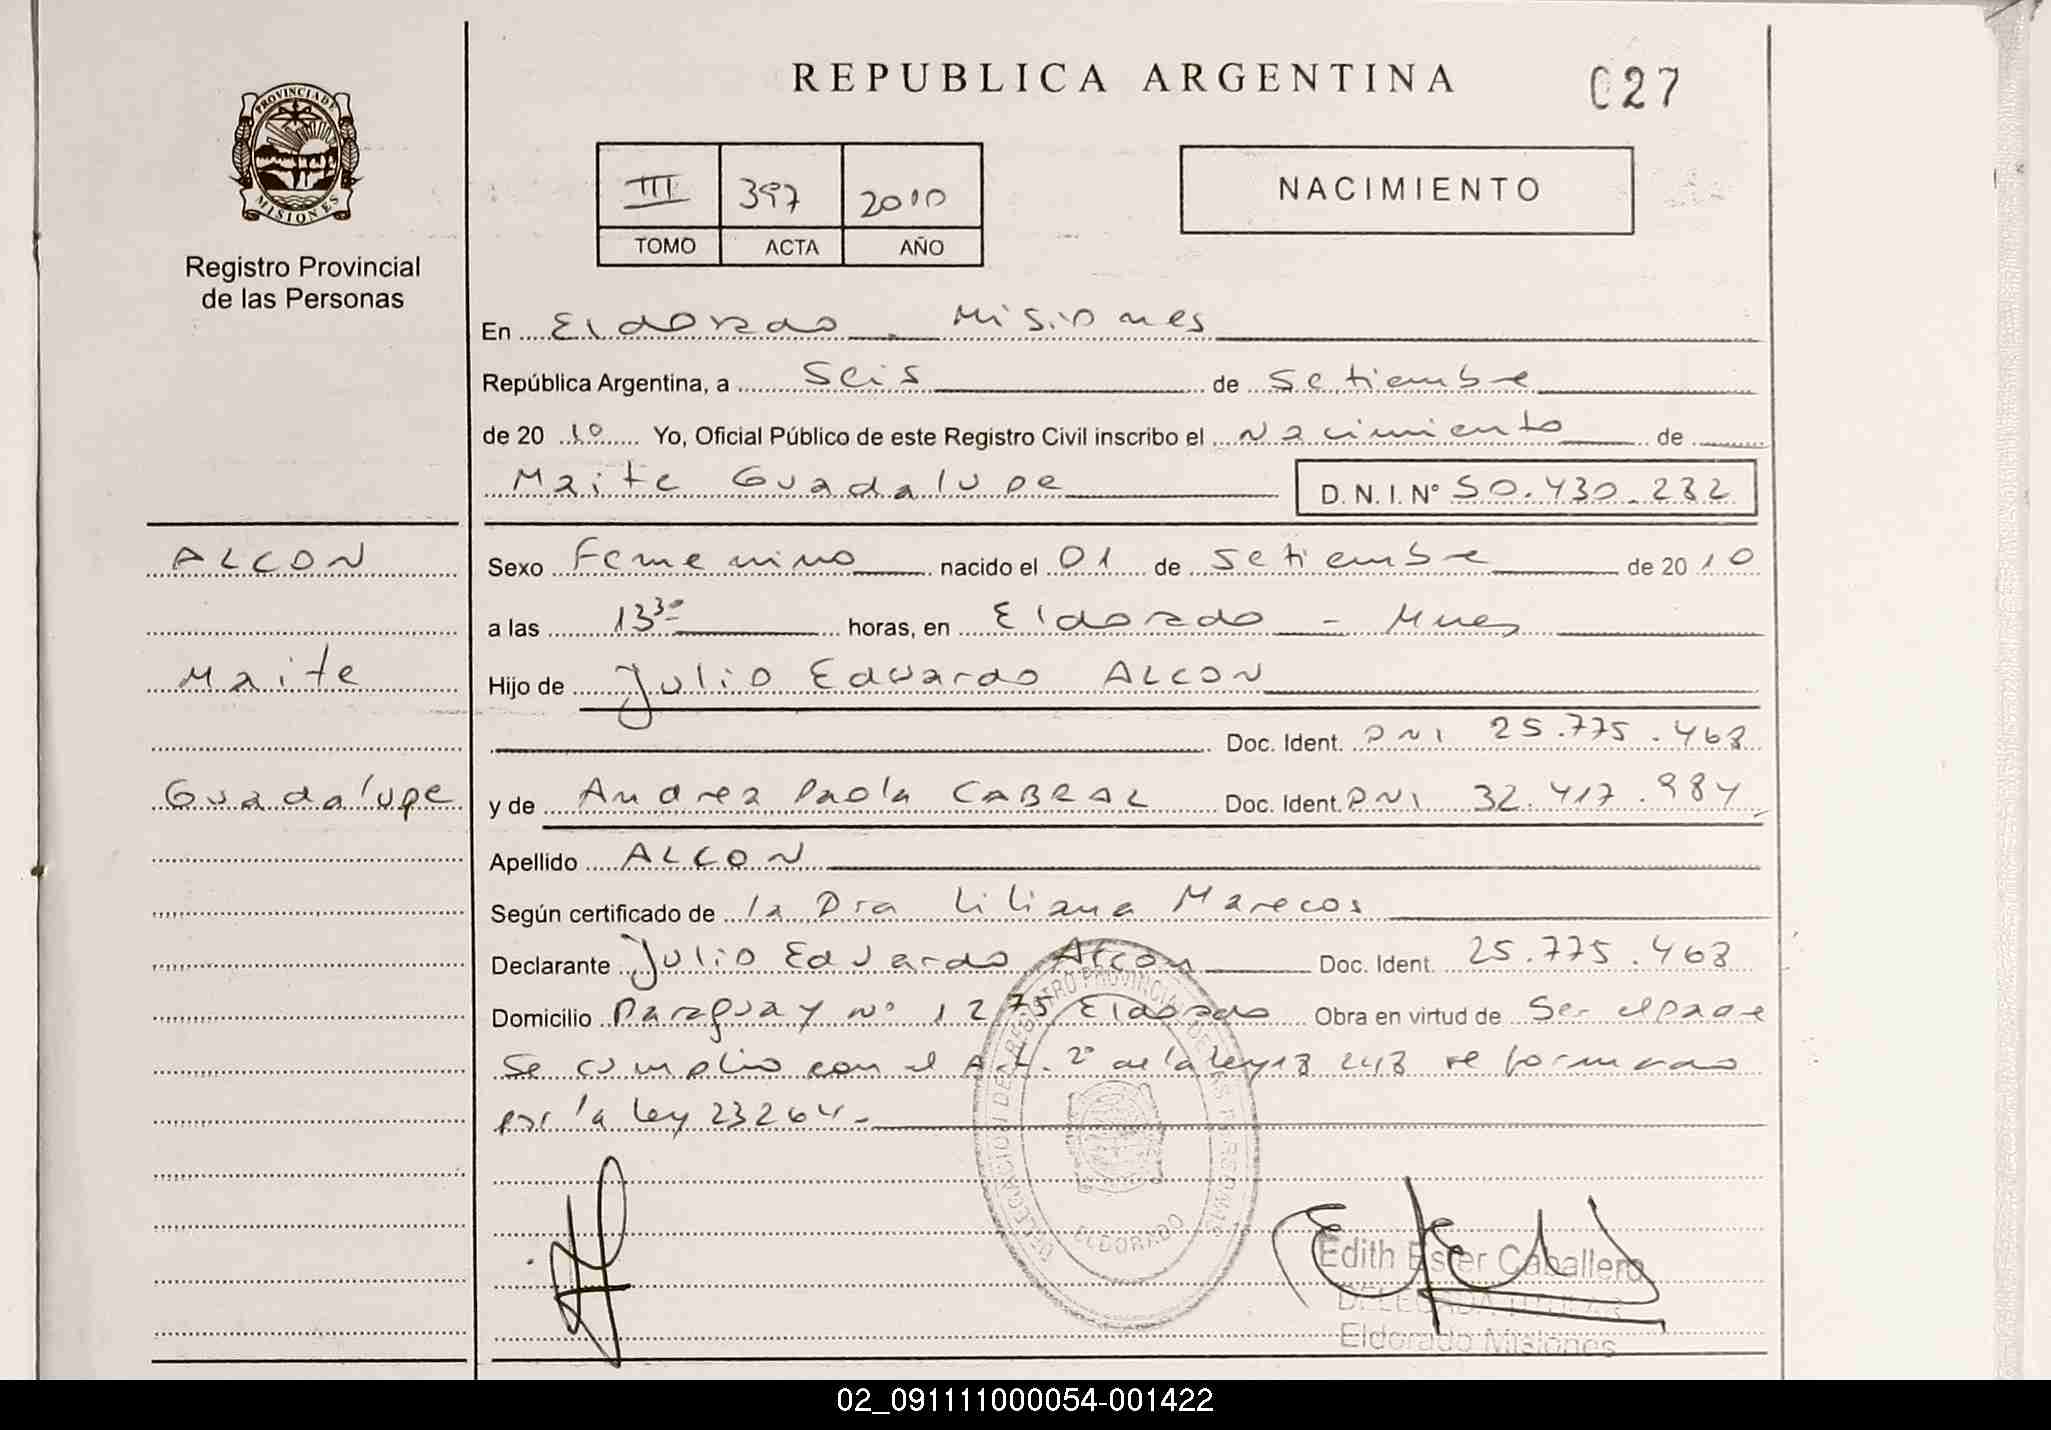 REPUBLICA ARGENTINA
027
PROVINCIA DE
MISIONES
Registro Provincial
de las Personas
III 397 2010
TOMO ACTA AÑO
NACIMIENTO
En Eldorado - Misiones
República Argentina, a seis de setiembre
de 2010 Yo, Oficial Público de este Registro Civil inscribo el Nacimiento de
Maite Guadalupe D.N.I. Nº 50.430.232
ALCON
Maite
Guadalupe
Sexo Femenino nacido el 01 de setiembre de 2010
a las 13 30 horas, en Eldorado - Mnes
Hijo de Julio Eduardo ALCON
Doc. Ident. DNI 25.775.468
y de Andrea Paola CABRAL Doc. Ident. DNI 32.417.984
Apellido ALCON
Según certificado de la Dra Liliana Marecos
Declarante Julio Eduardo Alcon Doc. Ident. 25.775.468
Domicilio Paraguay nº 1275 Eldorado Obra en virtud de Ser el padre
Se cumplio con el Art. 2º de la ley 18 248 reformado
por la ley 23264-
DELEGACION DE REGISTRO PROVINCIAL DE LAS PERSONAS
ELDORADO
Edith Ester Caballero
DELEGADA TITULAR
Eldorado Misiones
02_091111000054-001422